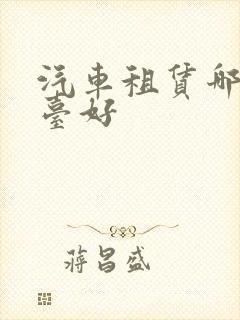 汽車租賃哪
臺好
蔣昌盛